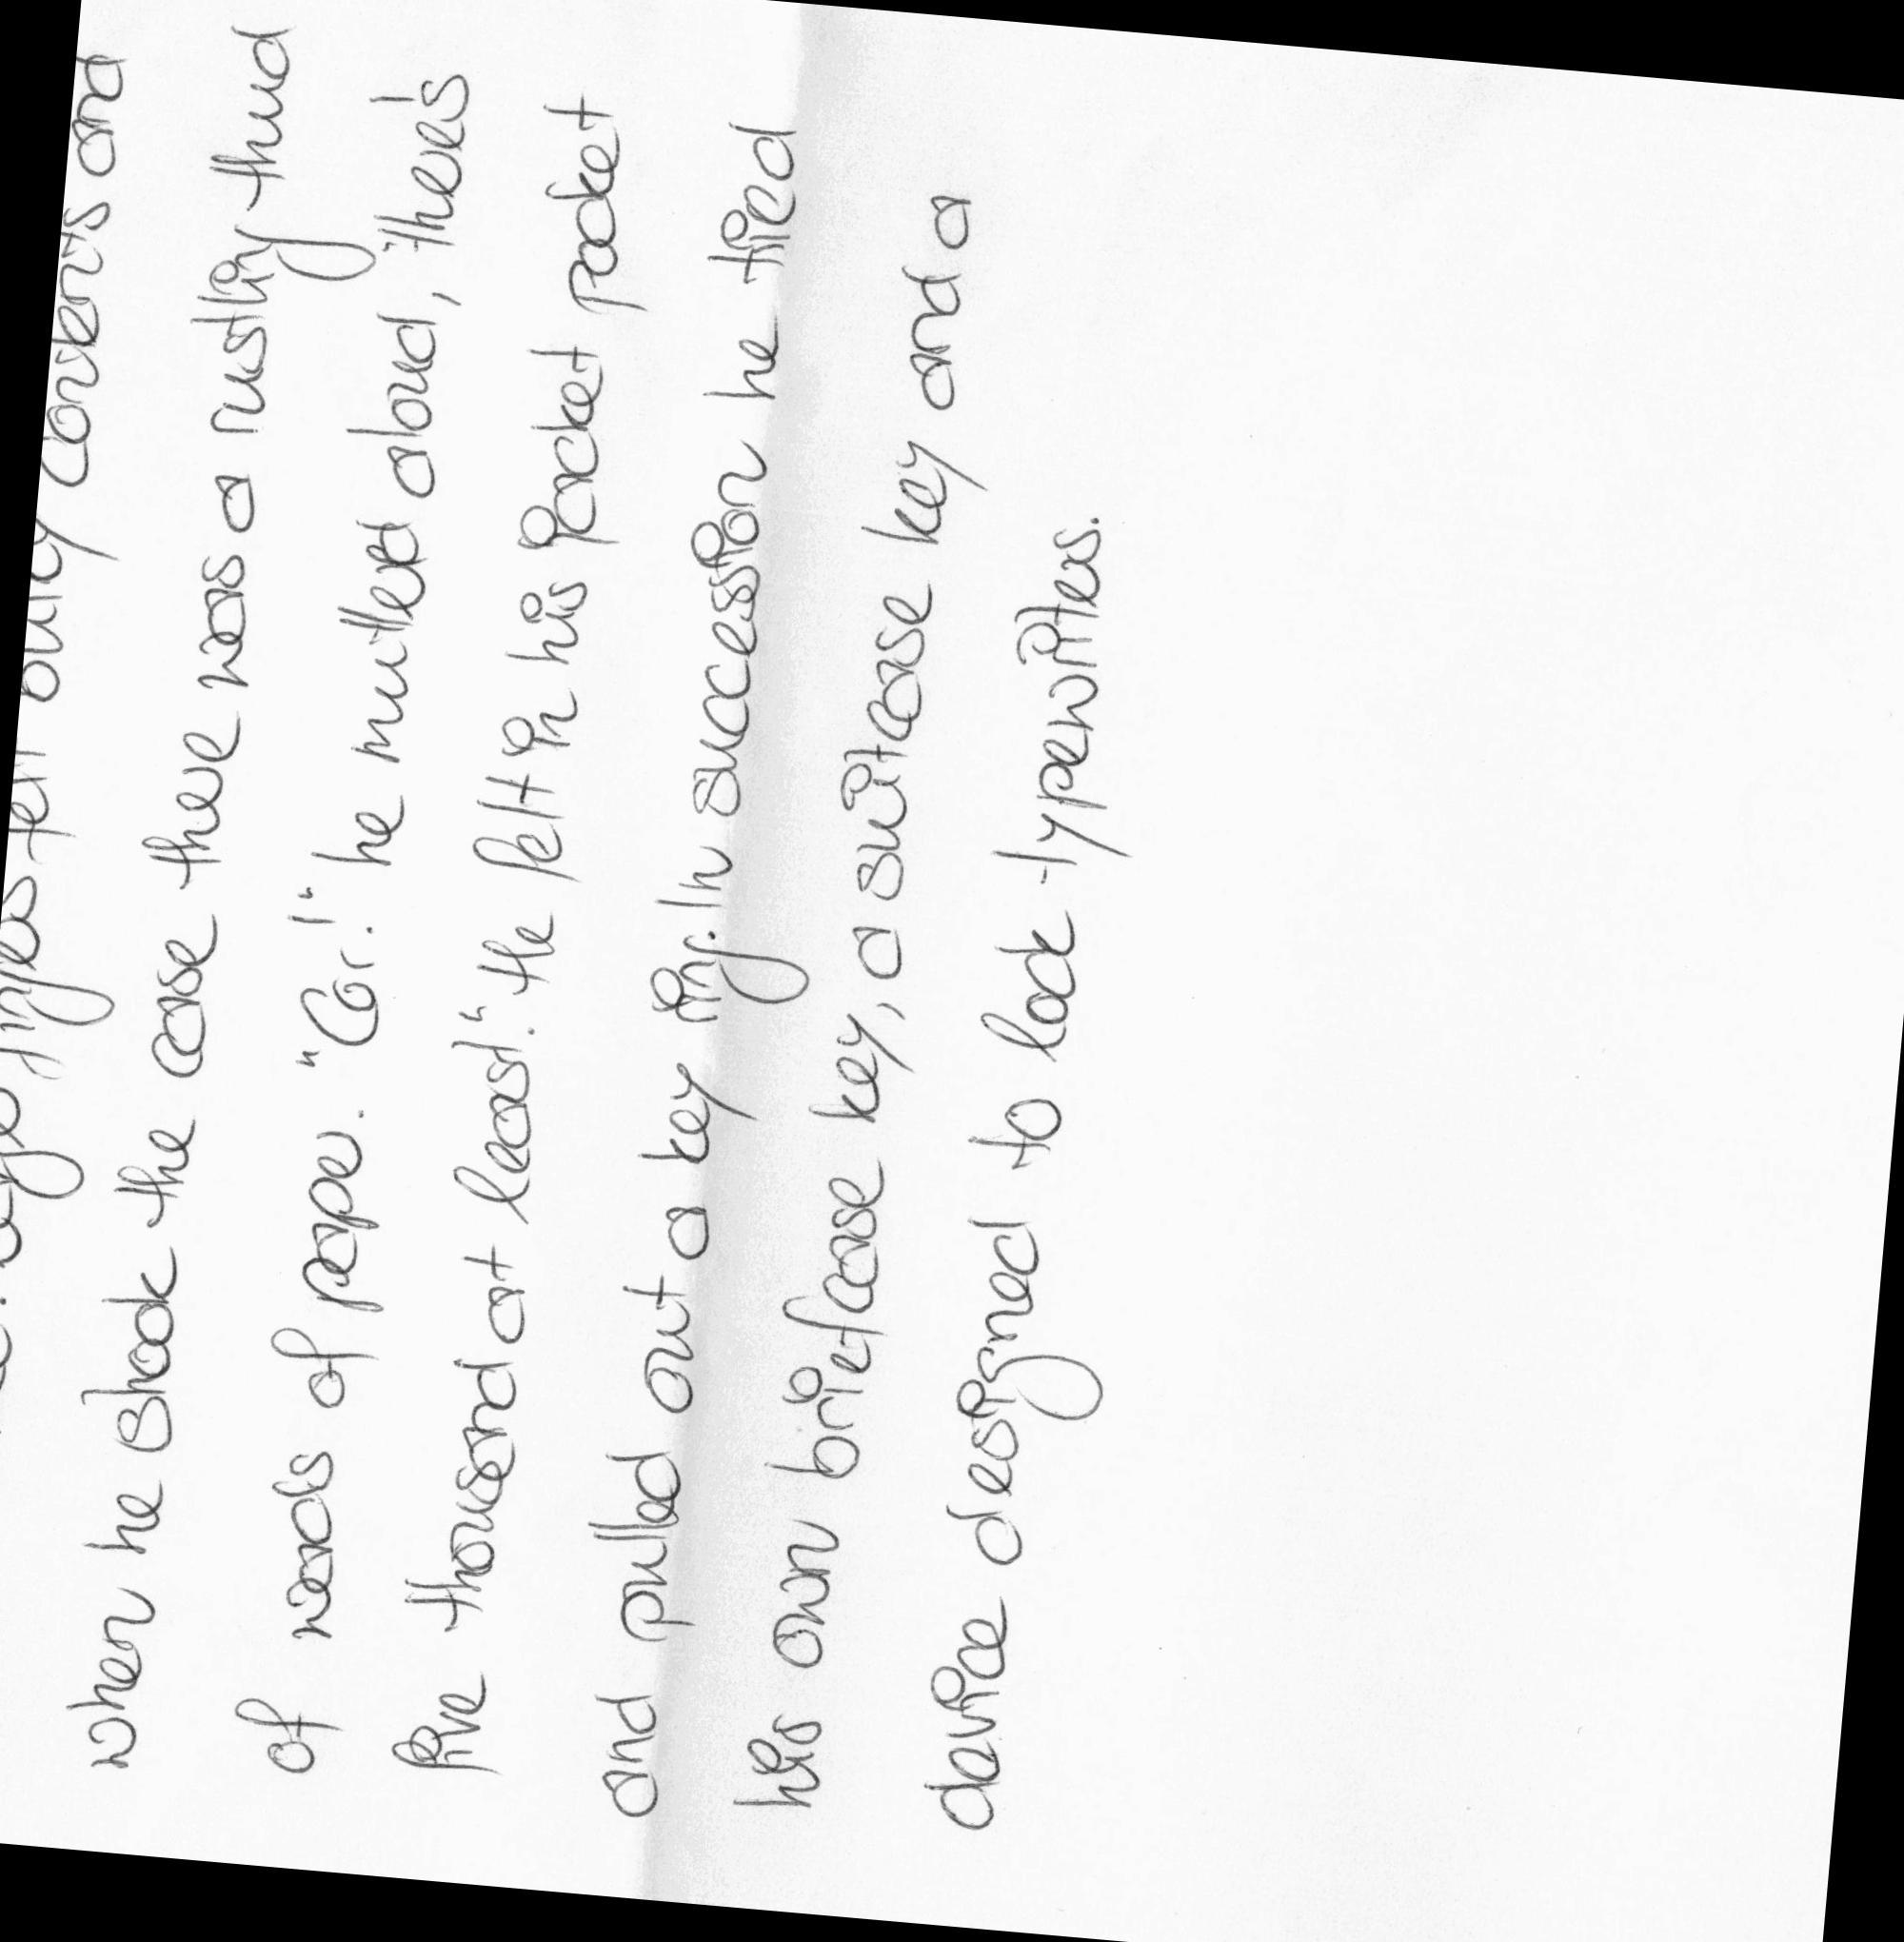 fingers felt bulky contents and
when he shook the case there was a rustly thud
of wads of paper. "Cor!" he muttered aloud, "there's
five thousand at least." He felt in his jacket pocket
and pulled out a key ring. In succession he tried
his own briefcase key, a suitcase key and a
device designed to lock typewriters.